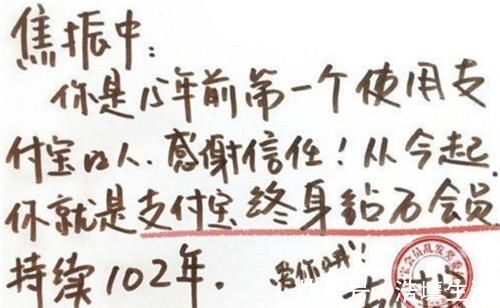 焦振中:
你是15年前第一个使用支
付宝的人.感谢信任!从今起.
你就是支付宝终身钻石会员
持续102年.
爱你哦!
宝会员乱发奖委